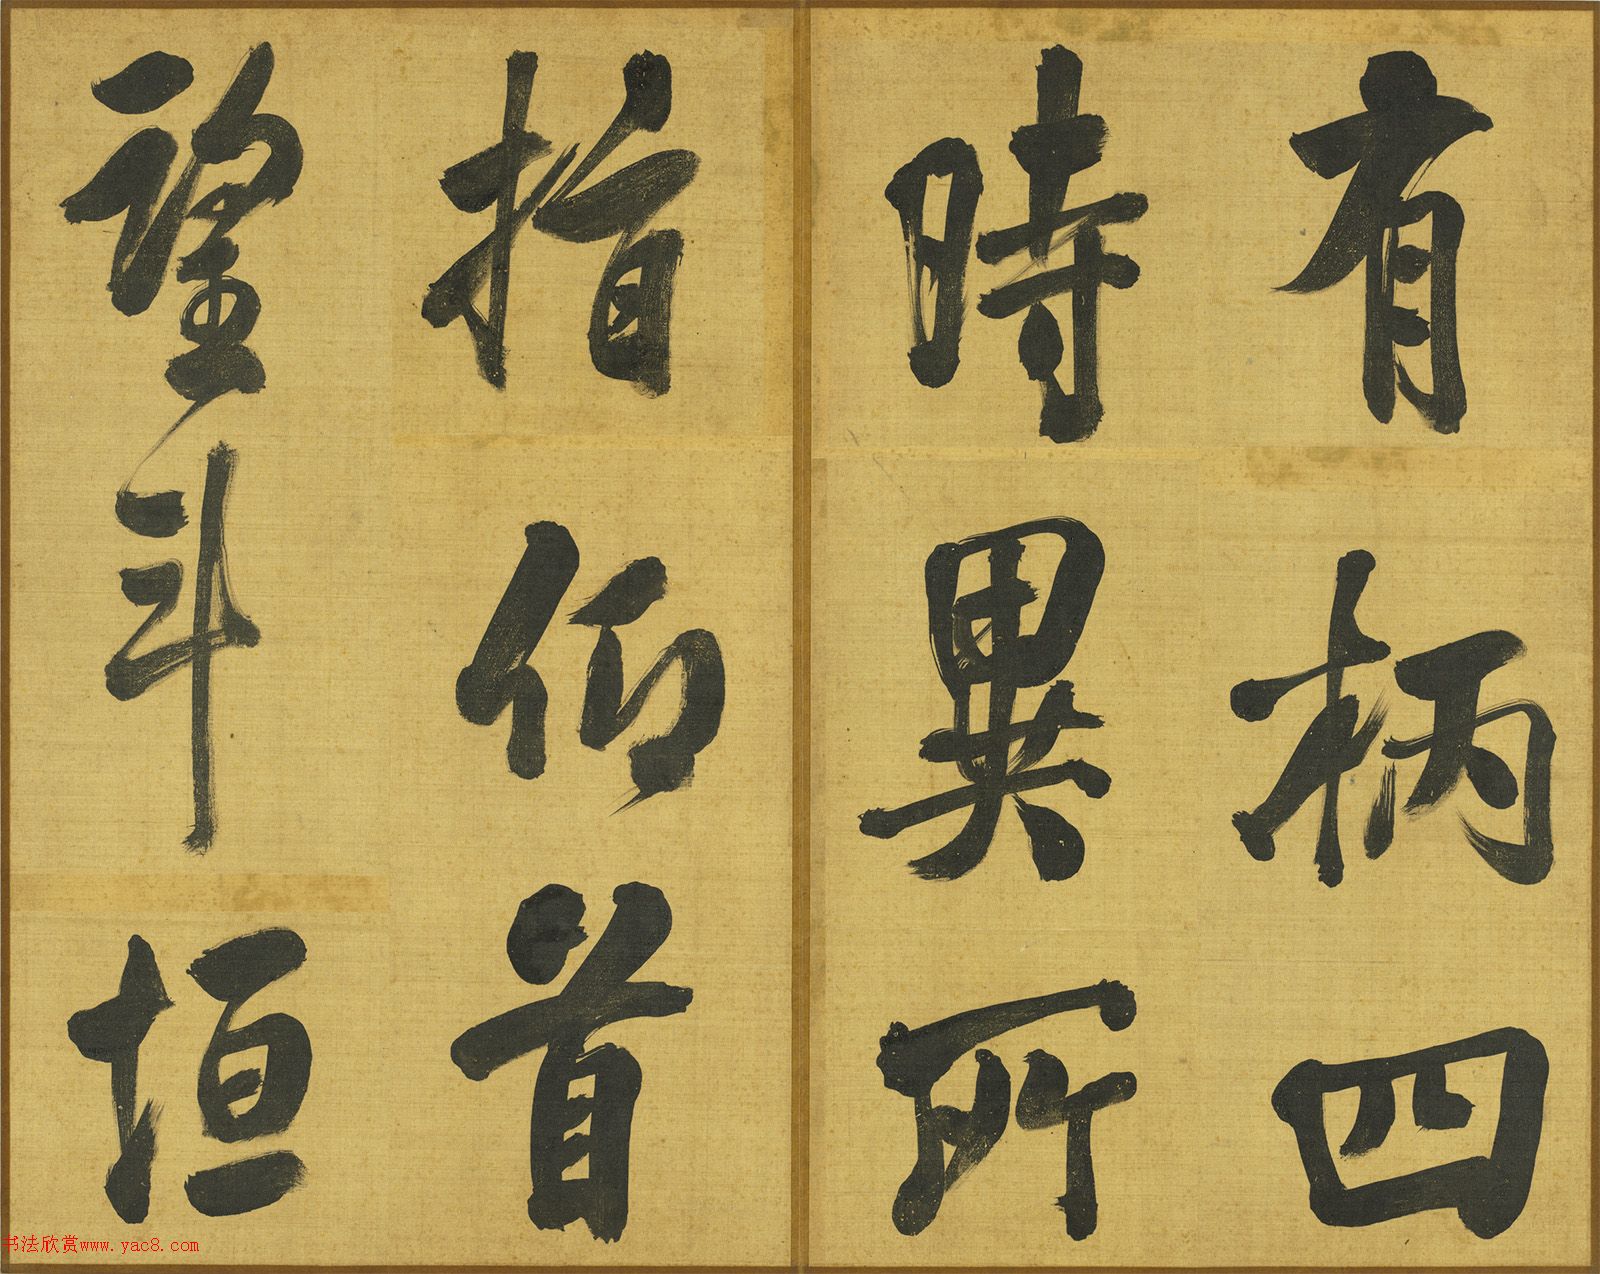 有柄四
時異所
指仰首
望斗垣
书法欣赏www.yac8.com